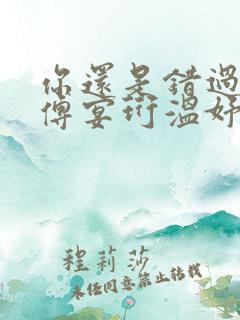 你還是錯過
傅宴珩溫妤
程莉莎
未经同意禁止转载